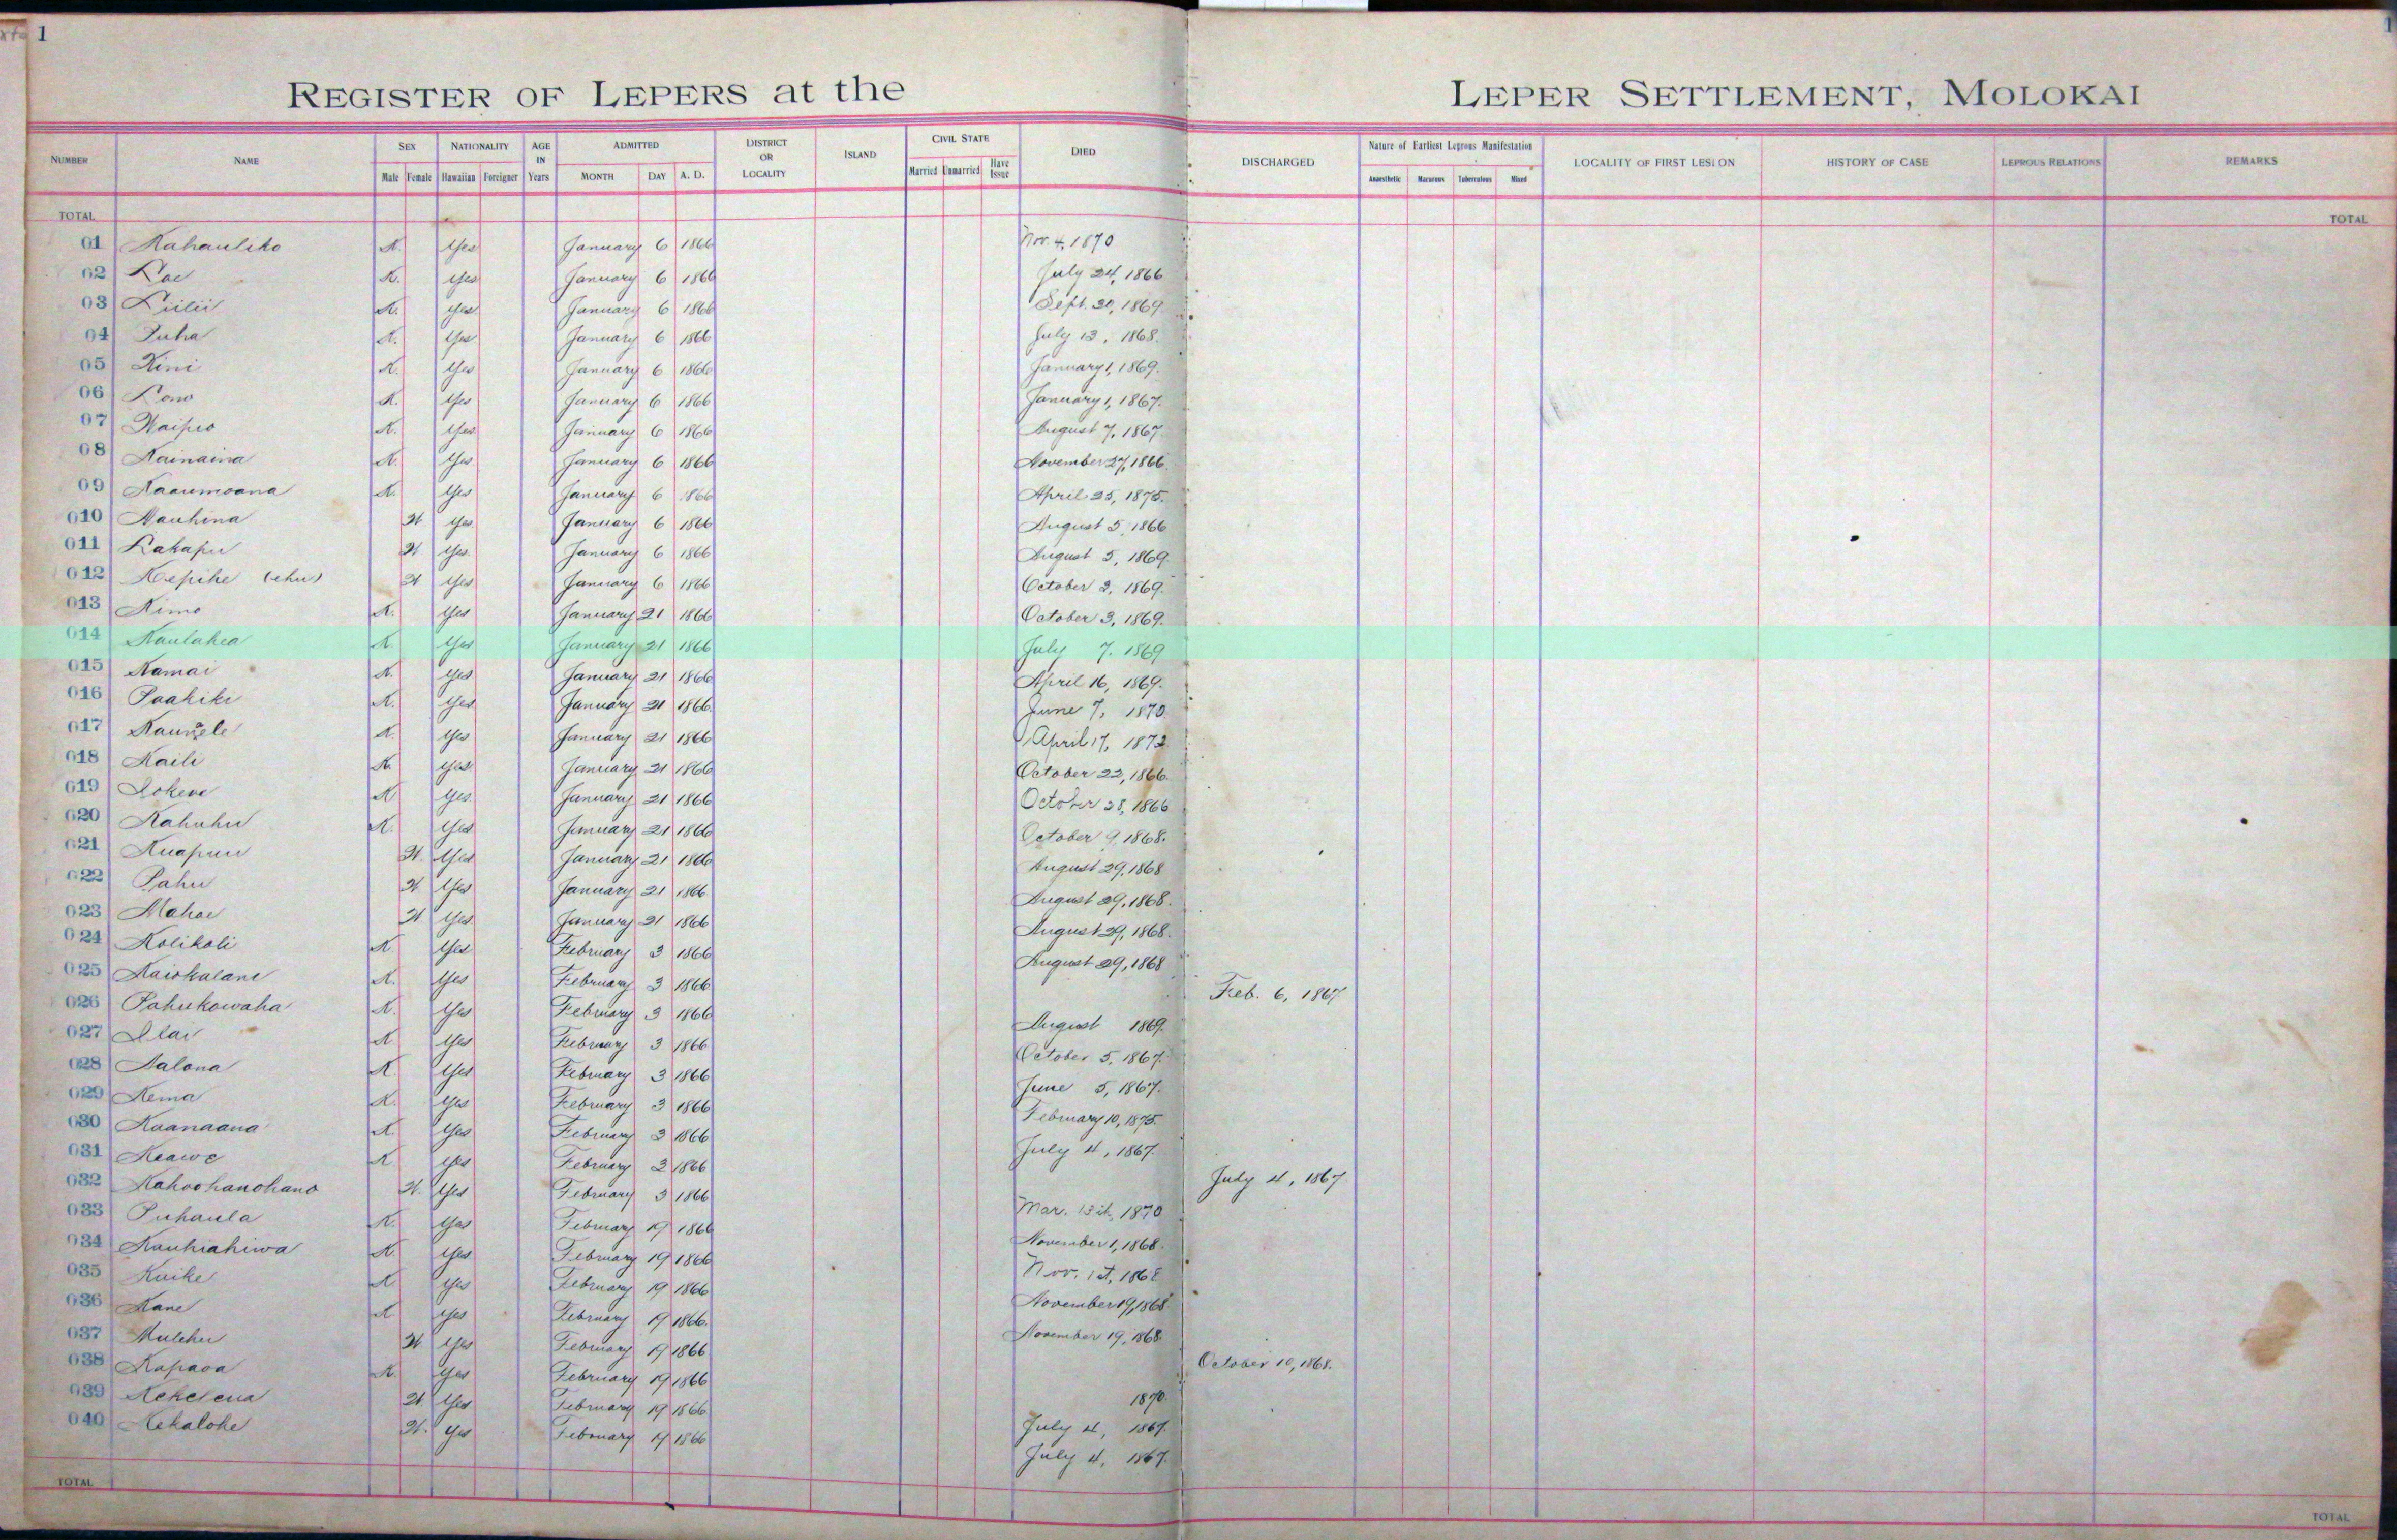 1
REGISTER OF LEPERS at the LEPER SETTLEMENT, MOLOKAI
NUMBER NAME SEX Male Female NATIONALITY Hawaiian Foreigner AGE IN Years ADMITTED MONTH DAY A. D. DISTRICT OR LOCALITY ISLAND CIVIL STATE Married Unmarried Have Issue DIED DISCHARGED Nature of Earliest Leprous Manifestation Anaesthetic Macurous Tuberculous Mixed LOCALITY OF FIRST LESION HISTORY OF CASE LEPROUS RELATIONS REMARKS
TOTAL TOTAL
01 Kahauliko K. Yes January 6 1866 Nov. 4, 1870
02 Kae K. Yes January 6 1866 July 24, 1866
03 Liilii K. Yes January 6 1866 Sept. 30, 1869
04 Puha K. Yes January 6 1866 July 13, 1868.
05 Kini K. Yes January 6 1866 January 1, 1869.
06 Lono K. Yes January 6 1866 January 1, 1867.
07 Waipio K. Yes January 6 1866 August 7, 1867
08 Kainaina K. Yes January 6 1866 November 27, 1866.
09 Kaaumoana K. Yes January 6 1866 April 25, 1875.
010 Nauhina W Yes January 6 1866 August 5, 1866
011 Lakapu W Yes January 6 1866 August 5, 1869.
012 Kepihe (ehu) W Yes January 6 1866 October 3, 1869.
013 Kimo K. Yes January 21 1866 October 3, 1869.
014 Kaulahea K Yes January 21 1866 July 7. 1869
015 Kamai K. Yes January 21 1866 April 16, 1869.
016 Paakiki K. Yes January 21 1866 June 7, 1870
017 K. Yes January 21 1866 April 17, 1872
018 Kaili K Yes January 21 1866 October 22, 1866.
019 Lokene K Yes January 21 1866 October 28, 1866
020 Kahuhu K. Yes January 21 1866 October 9, 1868.
021 Kuapuu W. Yes January 21 1866 August 29, 1868
022 Pahu W Yes January 21 1866 August 29, 1868.
023 Mahoe W Yes January 21 1866 August 29, 1868.
024 Kolikoli K. Yes February 3 1866 August 29, 1868
025 Kaiokalani K. Yes February 3 1866 Feb. 6, 1867
026 Pahukowaha K. Yes February 3 1866 August 1869.
027 Ilai K Yes February 3 1866 October 5, 1867.
028 Kalona K. Yes February 3 1866 June 5, 1867.
029 Kema K. Yes February 3 1866 February 10, 1875.
030 Kaanaana K. Yes February 3 1866 July 4, 1867
031 Keawe K Yes February 3 1866 July 4, 1867
032 Kahoohanohano W. Yes February 3 1866 Mar. 15th, 1870
033 Puhaula K. Yes February 19 1866 November 1, 1868.
034 Kauhiahiwa K. Yes February 19 1866 Nov. 1st, 1868
035 Kuike K Yes February 19 1866 November 19, 1868
036 Kane K Yes February 19 1866. November 19, 1868.
037 Mulehu W Yes February 19 1866 October 10, 1868.
038 Kapaoa K. Yes February 19 1866 1870.
039 Kekelena W Yes February 19 1866 July 4, 1867.
040 Kekalohe W. Yes February 19 1866 July 4, 1867.
TOTAL TOTAL